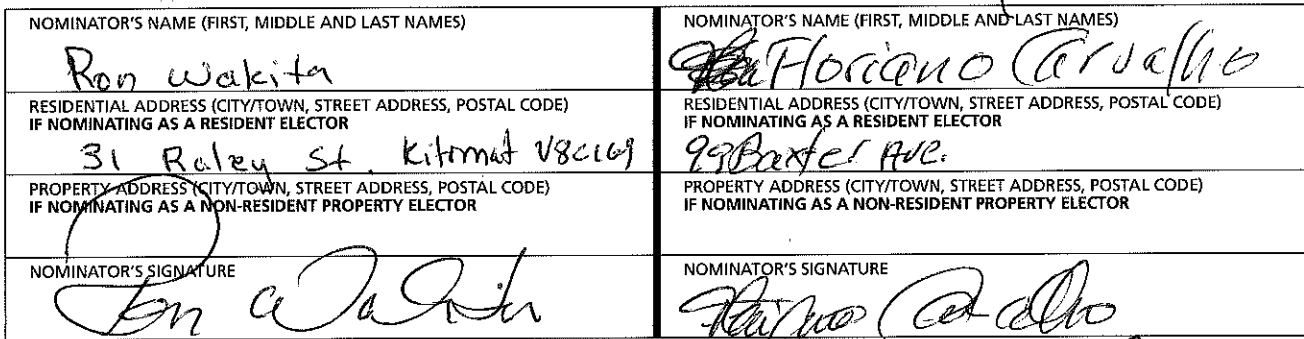 NOMINATOR'S NAME (FIRST, MIDDLE AND LAST NAMES)
Ron Wakita
RESIDENTIAL ADDRESS (CITY/TOWN, STREET ADDRESS, POSTAL CODE)
IF NOMINATING AS A RESIDENT ELECTOR
31 Raley St. Kitimat
PROPERTY ADDRESS (CITY/TOWN, STREET ADDRESS, POSTAL CODE)
IF NOMINATING AS A NON-RESIDENT PROPERTY ELECTOR
NOMINATOR'S SIGNATURE
Ron Wakita
NOMINATOR'S NAME (FIRST, MIDDLE AND LAST NAMES)
Floriano Carvalho
RESIDENTIAL ADDRESS (CITY/TOWN, STREET ADDRESS, POSTAL CODE)
IF NOMINATING AS A RESIDENT ELECTOR
99 Baxter Ave.
PROPERTY ADDRESS (CITY/TOWN, STREET ADDRESS, POSTAL CODE)
IF NOMINATING AS A NON-RESIDENT PROPERTY ELECTOR
NOMINATOR'S SIGNATURE